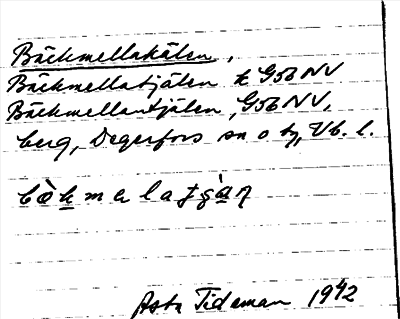 Bäckmellakälen,
Bäckmellatjälen k G5b NV
Bäckmellantjälen, G5b NV,
berg, Degerfors sn o tg, Vb. l.
bàkmelatʃàn
Asta Tideman 1942